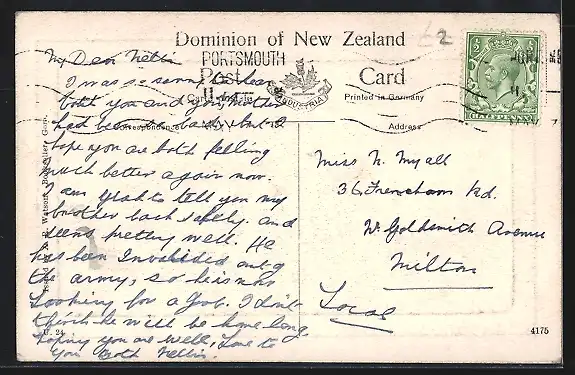 £2
Dominion of New Zealand
Post Card
Carte Postale
Printed in Germany
Correspondence
Address
PORTSMOUTH
INDUSTRIA
HALFPENNY
My Dear Nellie
I was so sorry to hear
both you and your mother
had been so bad, but I
hope you are both feeling
much better again now.
I am glad to tell you my
brother back safely. and
seems pretty well. He
has been Invalided out of
the army, so he is now
Looking for a Job. I don't
think he will be home long,
hoping you are well, Love to
You Both Nellie.
Miss N. Myall
36 Frencham Rd.
Nr Goldsmith Avenue
Milton
Local
U. 24
4175